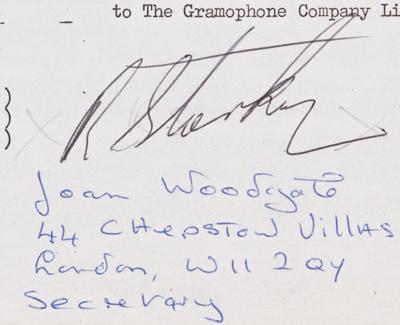 to The Gramophone Company Li
R Starkey
Joan Woodgate
44 Chepstow Villas
London, W11 2QY
Secretary